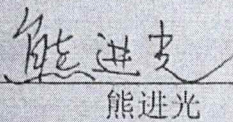 熊进光
熊进光